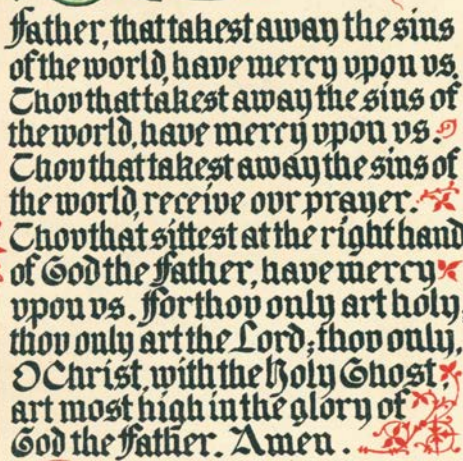 Father, that takest away the sins
of the world, have mercy vpon vs.
Thov that takest away the sins of
the world, have mercy vpon vs.
Thov that takest away the sins of
the world, receive ovr prayer.
Thov that sittest at the right hand
of God the Father, have mercy
vpon vs. For thov only art holy,
thov only art the Lord; thov only,
O Christ, with the Holy Ghost,
art most high in the glory of
God the Father. Amen.